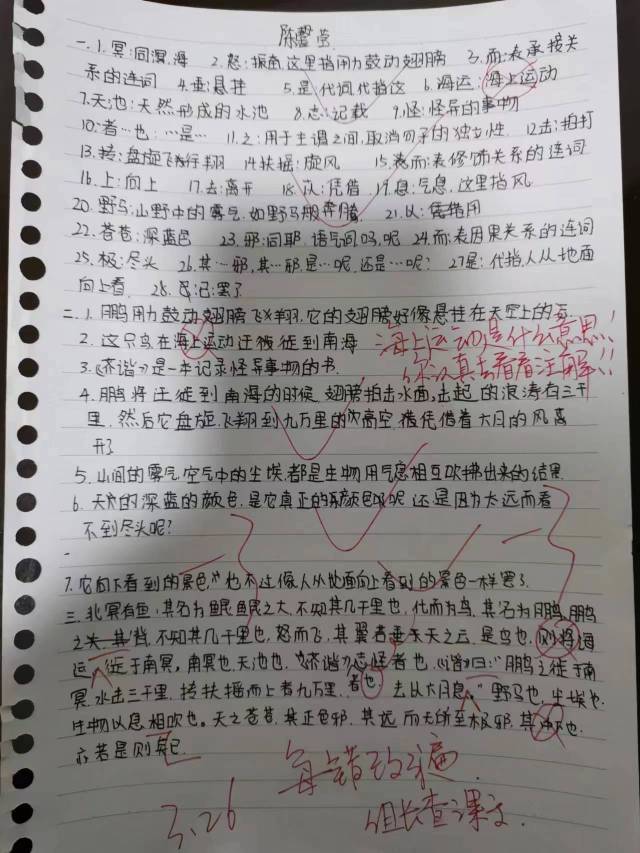 一.1.冥:同溟,海 2.怒:振奋,这里指用力鼓动翅膀 3.而:表承接关
系的连词 4.垂:悬挂 5.是:代词,代指这 6.海运:海上运动
7.天池:天然形成的水池 8.志:记载 9.怪:怪异的事物
10.者…也:…是… 11.之:用于主谓之间,取消句子的独立性. 12.击:拍打
13.抟:盘旋飞行 14.扶摇:旋风 15.表而:表修饰关系的连词
16.上:向上 17.去:离开 18.以:凭借 19.息:气息,这里指风.
20.野马:山野中的雾气,如野马般奔腾. 21.以:凭借用
22.苍苍:深蓝色 23.邪:同耶,语气词吗,呢 24.而:表因果关系的连词
25.极:尽头 26.其…邪,其…邪:是…呢,还是…呢? 27.是:代指人从地面
向上看. 28.已:罢了
二.1.鹏用力鼓动翅膀飞翔.它的翅膀好像悬挂在天空上的云
2.这只鸟在海上运动迁徙到南海
海上运动是什么意思!!
3.《齐谐》是一本记录怪异事物的书.
你认真去看看注解!!
4.鹏将迁徙到南海的时候,翅膀拍击水面,击起的浪涛有三千
里,然后它盘旋飞翔到九万里的高空,凭借着六月的风离
开了
5.山间的雾气,空气中的尘埃,都是生物用气息相互吹拂出来的结果.
6.天的深蓝的颜色,是它真正的颜色呢 还是因为太远而看
不到尽头呢?
7.它向下看到的景色,也不过像人从地面向上看到的景色一样罢了.
三.北冥有鱼,其名为鲲.鲲之大,不知其几千里也,化而为鸟,其名为鹏.鹏
之背,不知其几千里也,怒而飞,其翼若垂天之云.是鸟也,则将海
运,徙于南冥,南冥也,天池也,《齐谐》志怪者也,《谐》曰:"鹏之徙于南
冥,水击三千里,抟扶摇而上者九万里,者也 去以六月息."野马也,尘埃也,
生物以息相吹也。天之苍苍,其正色邪,其远而无所至极邪,其也
亦若是则矣已.
每错改3遍
3.26
组长查课文.